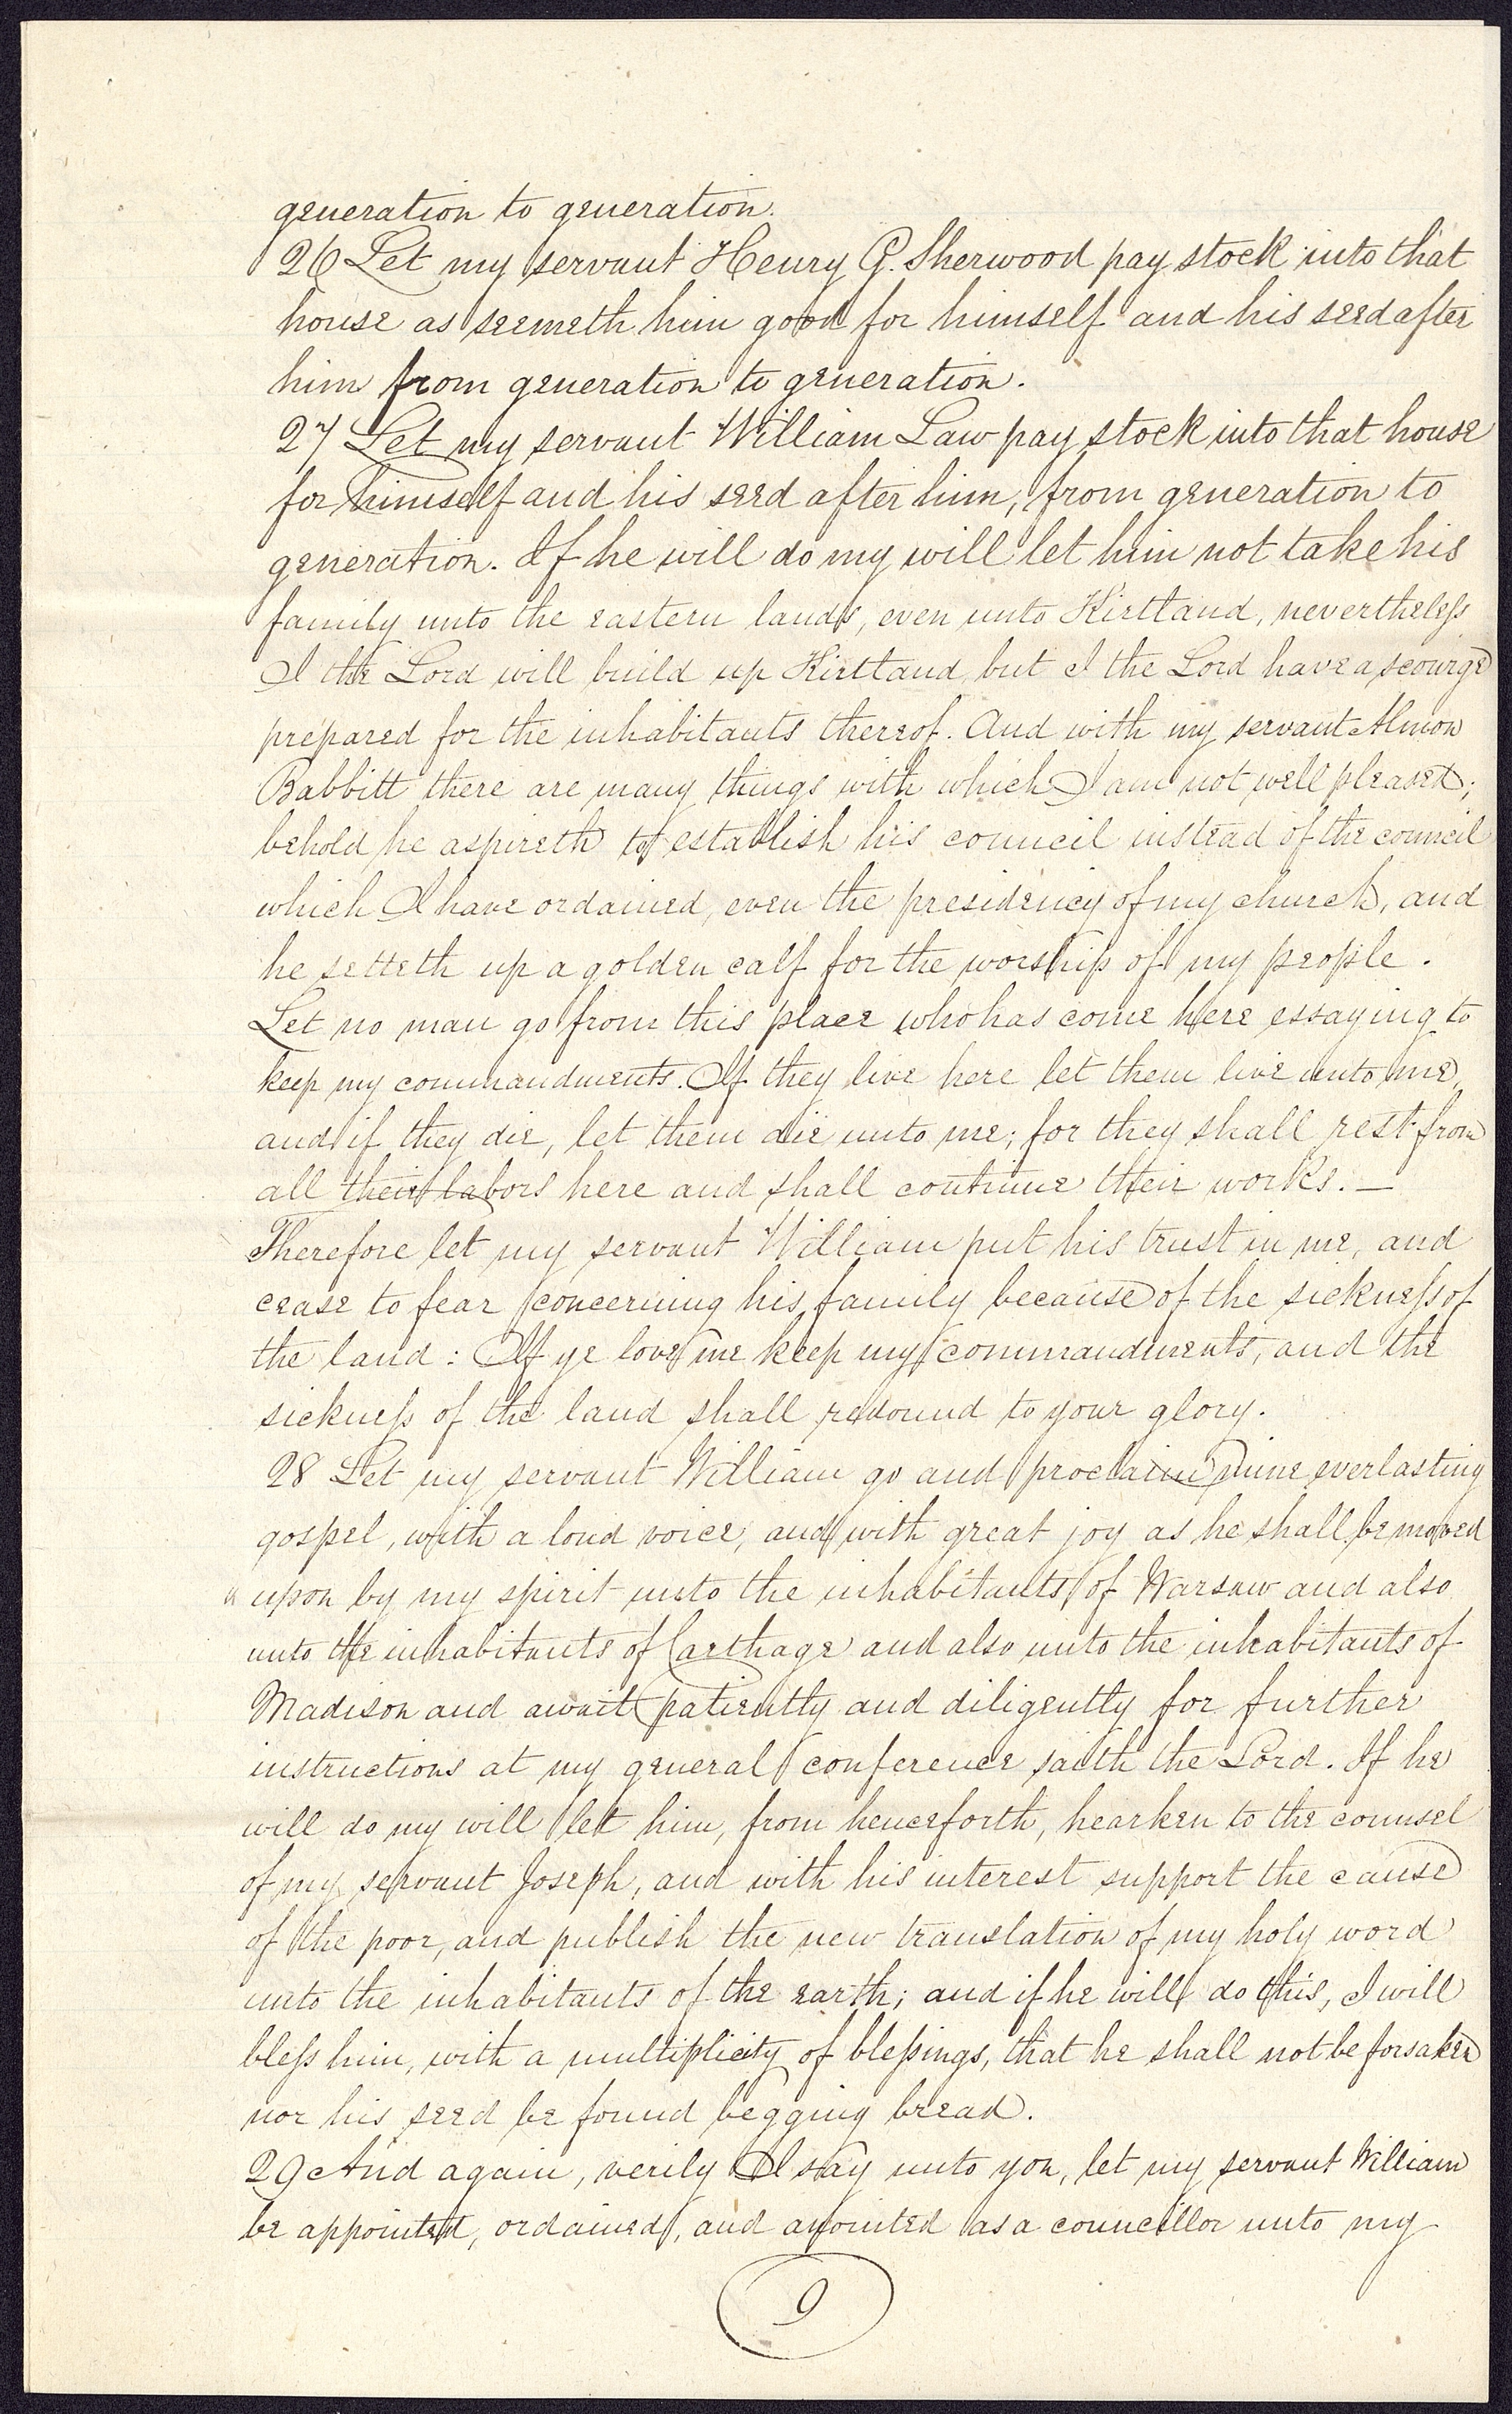 generation to generation.
26 Let my servant Henry G. Sherwood pay stock into that
house as seemeth him good for himself and his seed after
him from generation to generation.
27 Let my servant William Law pay stock into that house
for himself and his seed after him, from generation to
generation. If he will do my will let him not take his
family unto the eastern lands, even unto Kirtland, nevertheless
I the Lord will build up Kirtland, but I the Lord have a scourge
prepared for the inhabitants thereof. And with my servant Almon
Babbitt there are many things with which I am not well pleased;
behold he aspireth to establish his council instead of the council
which I have ordained, even the presidency of my church, and
he setteth up a golden calf for the worship of my people.
Let no man go from this place who has come here essaying to
keep my commandments. If they live here let them live unto me,
and if they die, let them die unto me; for they shall rest from
all their labors here and shall continue their works. —
Therefore let my servant William put his trust in me, and
cease to fear concerning his family because of the sickness of
the land: If ye love me keep my commandments, and the
sickness of the land shall redound to your glory.
28 Let my servant William go and proclaim mine everlasting
gospel, with a loud voice, and with great joy as he shall be moved
upon by my spirit unto the inhabitants of Warsaw and also
unto the inhabitants of Carthage and also unto the inhabitants of
Madison and await patiently and diligently for further
instructions at my general conference saith the Lord. If he
will do my will let him, from henceforth, hearken to the counsel
of my servant Joseph, and with his interest support the cause
of the poor, and publish the new translation of my holy word
unto the inhabitants of the earth; and if he will do this, I will
bless him, with a multiplicity of blessings, that he shall not be forsaken
nor his seed be found begging bread.
29 And again, verily I say unto you, let my servant William
be appointed, ordained, and anointed as a councillor unto my
9